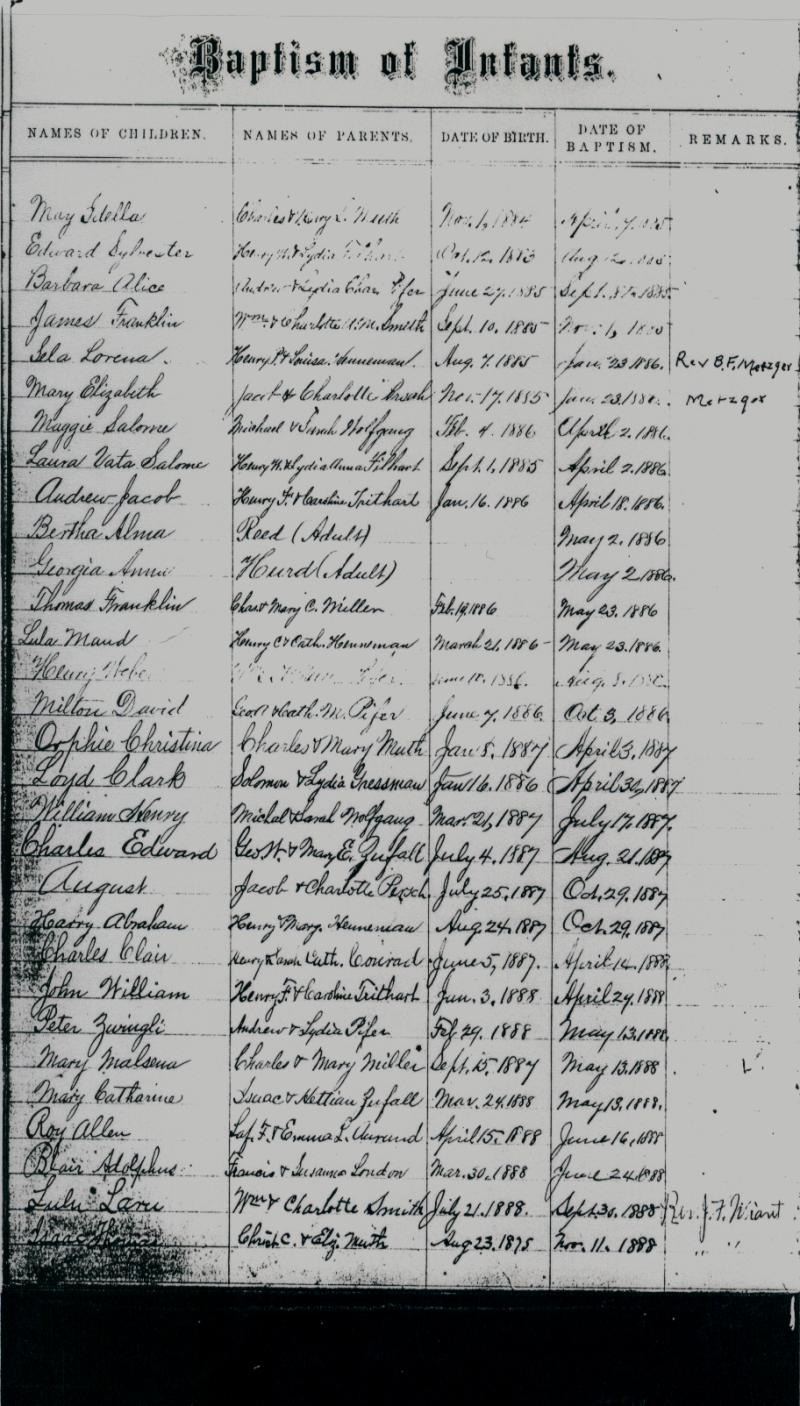 Baptism of Infants.
NAMES OF CHILDREN. NAMES OF PARENTS. DATE OF BIRTH. DATE OF BAPTISM. REMARKS.
May Stella Charles & Mary L. Muth Nov. 1, 1884 April
Edward Sylvester Henry W. & Lydia Oct. 12, 1883 Aug
Barbara Alice Andrew & Lydia Pifer June 27, 1885 Sept. 1885
James Franklin Wm. & Charlotte A. M. Smith Sept. 10, 1885 Nov. 1, 1885
Lela Lorena. Henry P. & Louisa Henneman. Aug. 7. 1885 Jan. 23 1886. Rev B. F. Metzger
Mary Elizabeth Jacob & Charlotte Nov. 17. 1885 Jan. 23 Metzger
Maggie Salome Michael & Sarah Wolfgang Feb. 4. 1886 April 2. 1886.
Laura Vata Salome Henry W. & Lydia Anna Sept. 1, 1885 April 2. 1886.
Andrew Jacob Henry F. & Caroline Trithart Jan. 16. 1886 April 18. 1886.
Bertha Alma Reed (Adult) May 2. 1886
Georgia Anna Hurd (Adult) May 2. 1886.
Thomas Franklin Chas & Mary C. Miller Feb. 19, 1886 May 23. 1886
Lula Maud Henry C & Cath. Henneman March 21, 1886 May 23. 1886.
Henry Pifer June 1886. Aug. 8.
Milton David & Cath. M. Pifer June 7, 1886 Oct 3, 1886
Orphie Christina Charles & Mary Muth Jan 8, 1887 April 3, 1887
Loyd Clark Solomon & Lydia Gressman Jan 16. 1886 April 30, 1887
William Henry Michal & Sarah Wolfgang Mar. 21, 1887 July 17, 1887.
Charles Edward Geo W. & Mary E. Zufall July 4, 1887 Aug. 21, 1887
August Jacob & Charlotte July 25, 1887 Oct. 29, 1887
Harry Abraham Henry & Mary Henneman Aug 24, 1887 Oct. 29, 1887
Charles Clair Henry & Sarah Cath. Conrad June 5, 1887. April 14, 1888
John William Henry F. & Caroline Trithart Jan. 3, 1888 April 29, 1888
Peter Zwingli Andrew & Lydia Pifer Feb 29. 1888 May 13, 1888.
Mary Malsena Charles & Mary Miller Sept. 15, 1887 May 13, 1888
Mary Catharine Isaac & Hettian Zufall Mar. 24, 1888 May 13, 1888.
Roy Allen Laf. F. & Emma L. Aurand April 15, 1888 June 16, 1888
Blair Adolphus Francis & Susanna London Mar. 30, 1888 June 24, 1888
Lulu Wm & Charlotte Smith July 21. 1888. Sept. 30. 1888 Rev. J. F. Wiant
Isaac Thomas Christ. C. & Eliz. Muth Aug 23, 1875 Nov. 11. 1888 " "